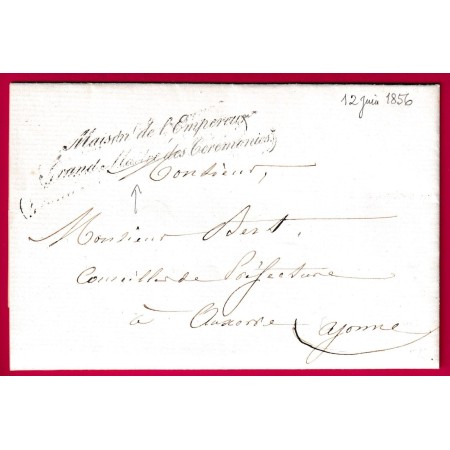 12 juin 1856
Maison de l'Empereur
Grand-Maître des Cérémonies
Monsieur,
Monsieur Bert,
Conseiller de Préfecture
à Auxerre (Yonne